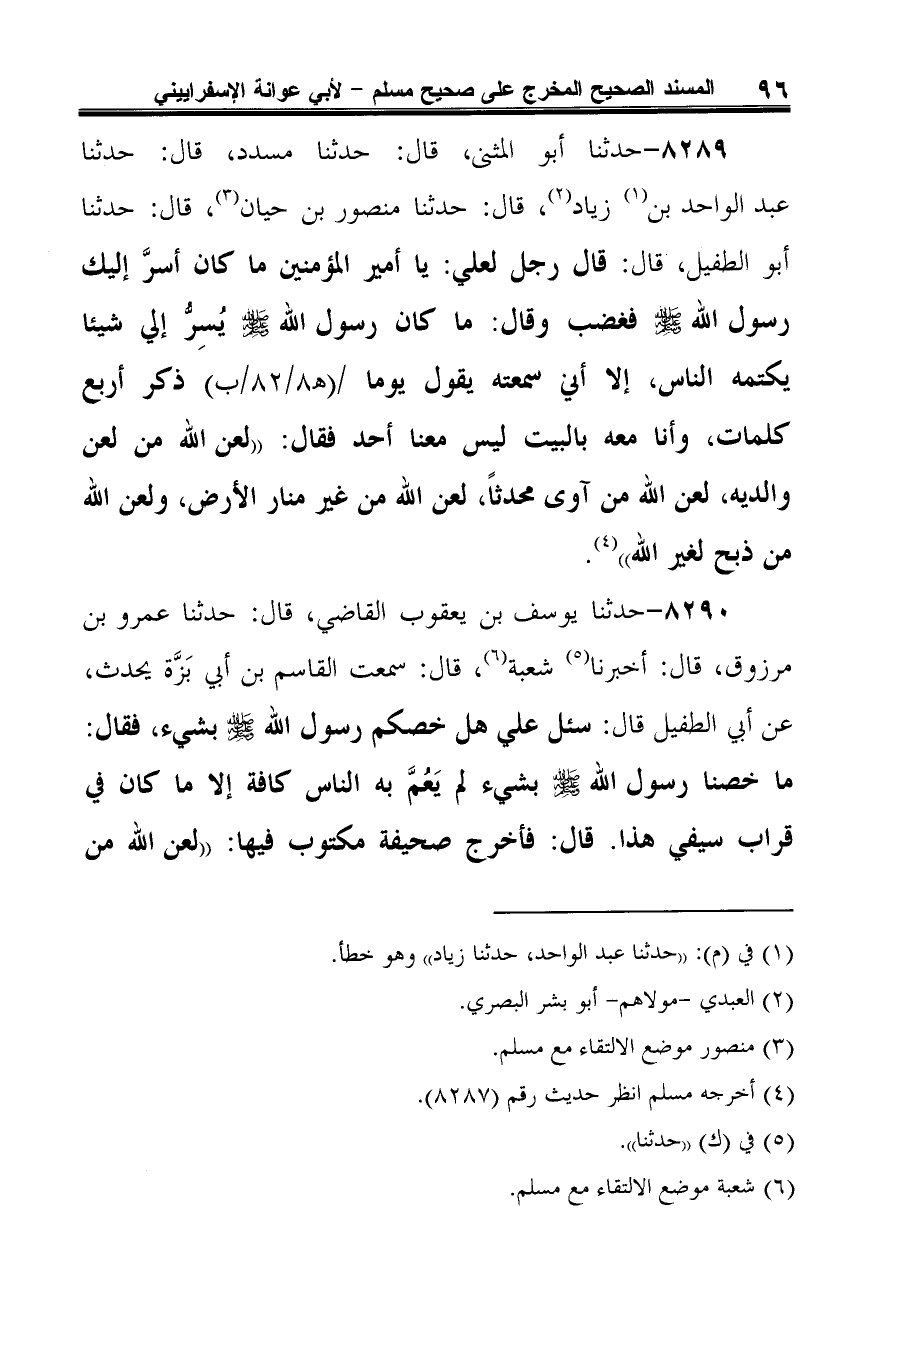 ٩٦ المسند الصحيح المخرج على صحيح مسلم - لأبي عوانة الإسفراييني
٨٢٨٩-حدثنا أبو المثنى، قال: حدثنا مسدد، قال: حدثنا
عبد الواحد بن(١) زياد(٢)، قال: حدثنا منصور بن حيان(٣)، قال: حدثنا
أبو الطفيل، قال: قال رجل لعلي: يا أمير المؤمنين ما كان أسرَّ إليك
رسول الله ﷺ فغضب وقال: ما كان رسول الله ﷺ يُسِرُّ إلي شيئا
يكتمه الناس، إلا أني سمعته يقول يوما /(ه٨٢/٨/ب) ذكر أربع
كلمات، وأنا معه بالبيت ليس معنا أحد فقال: ((لعن الله من لعن
والديه، لعن الله من آوى محدثاً، لعن الله من غير منار الأرض، ولعن الله
من ذبح لغير الله))(٤).
٨٢٩٠-حدثنا يوسف بن يعقوب القاضي، قال: حدثنا عمرو بن
مرزوق، قال: أخبرنا(٥) شعبة(٦)، قال: سمعت القاسم بن أبي بَزَّة يحدث،
عن أبي الطفيل قال: سئل علي هل خصكم رسول الله ﷺ بشيء، فقال:
ما خصنا رسول الله ﷺ بشيء لم يَعُمَّ به الناس كافة إلا ما كان في
قراب سيفي هذا. قال: فأخرج صحيفة مكتوب فيها: ((لعن الله من
(١) في (م): ((حدثنا عبد الواحد، حدثنا زياد)) وهو خطأ.
(٢) العبدي -مولاهم- أبو بشر البصري.
(٣) منصور موضع الالتقاء مع مسلم.
(٤) أخرجه مسلم انظر حديث رقم (٨٢٨٧).
(٥) في (ك) ((حدثنا)).
(٦) شعبة موضع الالتقاء مع مسلم.